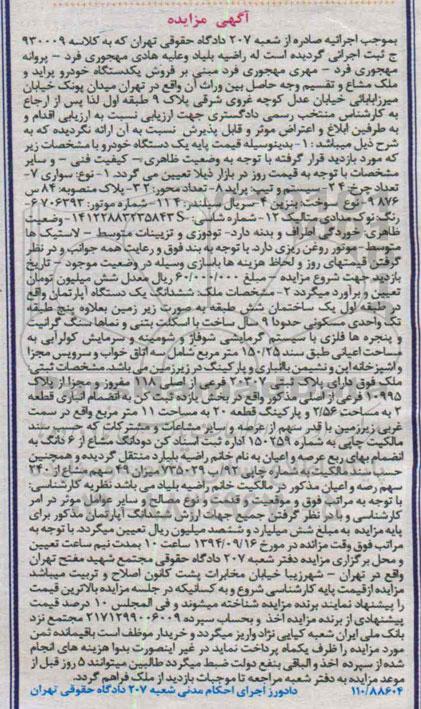 آگهی مزایده
بموجب اجرائیه صادره از شعبه ۲۰۷ دادگاه حقوقی تهران که به کلاسه ۹۳۰۰۰۹
ج ثبت اجرائی گردیده است له راضیه بلیاد وعلیه هادی مهجوری فرد - پروانه
مهجوری فرد - مهری مهجوری فرد مبنی بر فروش یکدستگاه خودرو پراید و
ملک مشاع و تقسیم وجه حاصل بین وراث آن واقع در تهران میدان پونک خیابان
میرزابابائی خیابان عدل کوچه غروی شرقی پلاک ۹ طبقه اول لذا پس از ارجاع
به کارشناس منتخب رسمی دادگستری جهت ارزیابی نسبت به ارزیابی اقدام و
به طرفین ابلاغ و اعتراض موثر و قابل پذیرش نسبت به آن ارائه نگردیده که به
شرح ذیل میباشد : ۱- بدینوسیله قیمت پایه یک دستگاه خودرو با مشخصات زیر
که مورد بازدید قرار گرفته با توجه به وضعیت ظاهری - کیفیت فنی - و سایر
مشخصات با توجه به قیمت روز در بازار ذیلا تعیین می گردد. ۱- نوع: سواری ۷-
تعداد چرخ ۴ ۲- سیستم و تیپ: پراید ۸- تعداد محور: ۲ ۳- پلاک منصوبه: ۸۴ س
۹۸۷۶ ۹- نوع سوخت: بنزین ۴- سیلندر: ۴ ۱۲- شماره موتور: ۶۷۰۶۲۹۳-
رنگ: نوک مدادی متالیک ۱۲- شماره شاسی: S۱۴۱۲۲۸۸۳۲۳۵۸۴۳- وضعیت
ظاهری: خوردگی اطراف و بدنه دارد- تودوزی و تزیینات متوسط - لاستیک ها
متوسط - موتور روغن ریزی دارد. با توجه به بند فوق و رعایت همه جوانب و در نظر
گرفتن قیمتهای روز و لحاظ هزینه ها بازسازی وسیله در وضعیت موجود - تاریخ
بازدید جهت شروع مزایده - مبلغ ۶۰/۰۰۰/۰۰۰ ریال معدل شش میلیون تومان
تعیین و برآورد میگردد ۲- مشخصات ملک: ششدانگ یک دستگاه آپارتمان واقع
در طبقه اول یک ساختمان شش طبقه به صورت زیر زمین بعلاوه پنج طبقه
تک واحدی مسکونی حدودا ۹ سال ساخت با اسکلت بتنی و نماها سنگ گرانیت
و پنجره ها فلزی با سیستم گرمایشی شوفاژ و شومینه و سرمایش کولرآبی به
مساحت اعیانی طبق سند ۱۵۰/۲۵ متر مربع شامل سه اتاق خواب و سرویس مجزا
و آشپزخانه اپن و نشیمن با انباری و پارکینگ در زیرزمین می باشد. مشخصات ثبتی:
ملک فوق دارای پلاک ثبتی ۲۰۲۰۷ فرعی از اصلی ۱۱۸ مفروز و مجزا از پلاک
۱۰۹۹۵ فرعی از اصلی مذکور واقع در بخش یازده ثبت کن به انضمام انباری قطعه
۲ به مساحت ۲/۵۶ و پارکینگ قطعه ۲۰ به مساحت ۱۱ متر مربع واقع در سمت
غربی زیرزمین با قدر سهم از عرصه و سایر مشاعات و مشترکات که حسب سند
مالکیت چاپی به شماره ۱۵۰۲۵۹ اداره ثبت اسناد کن دودانگ مشاع از ۶ دانگ به
انضمام بهای ربع عرصه و اعیان به نام خانم راضیه بلیارد منتقل گردیده و همچنین
حسب سند مالکیت به شماره چاپی ۹۲/ب ۷۳۵۰۲۹ میزان ۴۹ سهم مشاع از ۲۴۰
سهم عرصه و اعیان مذکور در مالکیت خانم راضیه بلیاد می باشد نظریه کارشناسی:
با توجه به مراتب فوق و موقعیت، مساحت، نوع مصالح و سایر عوامل موثر در امر
کارشناسی و با در نظر گرفتن جمیع جهات ارزش ششدانگ آپارتمان مذکور برای
پایه مزایده به مبلغ شش میلیارد و ششصد میلیون ریال تعیین میگردد. با توجه به
مراتب فوق وقت مزائده در مورخ ۱۳۹۴/۰۹/۱۶ ساعت ۱۰ بمدت نیم ساعت تعیین
و محل برگزاری مزایده دفتر شعبه ۲۰۷ دادگاه حقوقی مجتمع شهید مفتح تهران
واقع در تهران - شهرزیبا خیابان مخابرات پشت کانون اصلاح و تربیت میباشد
مزایده ازقیمت پایه کارشناسی شروع و به کسانیکه در جلسه مزایده بالاترین قیمت
را پیشنهاد نمایند برنده مزایده شناخته میشوند و فی المجلس ۱۰ درصد قیمت
پیشنهادی از برنده مزایده اخذ و بحساب سپرده ۲۱۷۱۲۹۹۰۰۶۰۰۹ مجتمع نزد
بانک ملی ایران شعبه کیایی نژاد واریز میگردد و خریدار موظف است باقیمانده ثمن
مورد مزایده را ظرف یکماه پرداخت نماید در غیر اینصورت بدوا هزینه های انجام
شده از سپرده اخذ و الباقی بنفع دولت ضبط میگردد طالبین میتوانند ۵ روز قبل از
موعد مزایده به دفتر شعبه مراجعه تا موجبات بازدید از ملک فراهم گردد.
۱۱۰/۸۸۶۰۴ دادورز اجرای احکام مدنی شعبه ۲۰۷ دادگاه حقوقی تهران